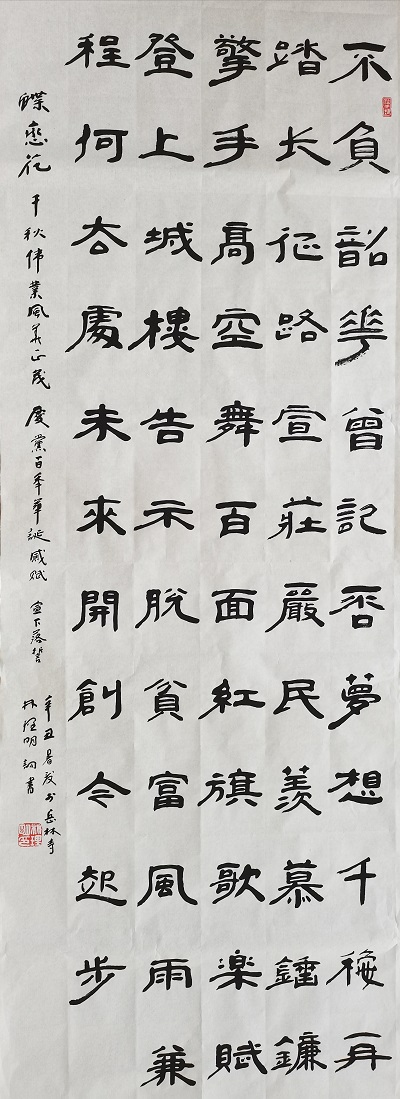 不負韶華曾記否夢想千穐再
踏長征路宣莊嚴民羨慕錘鐮
擎手髙空舞百面紅旗歌楽賦
登上城樓告示脫貧富風雨兼
程何去處未來開創今起步
蝶戀花 千秋伟業風華正茂 慶黨百年華誕感賦
辛丑於岳林寺
林理明詞書